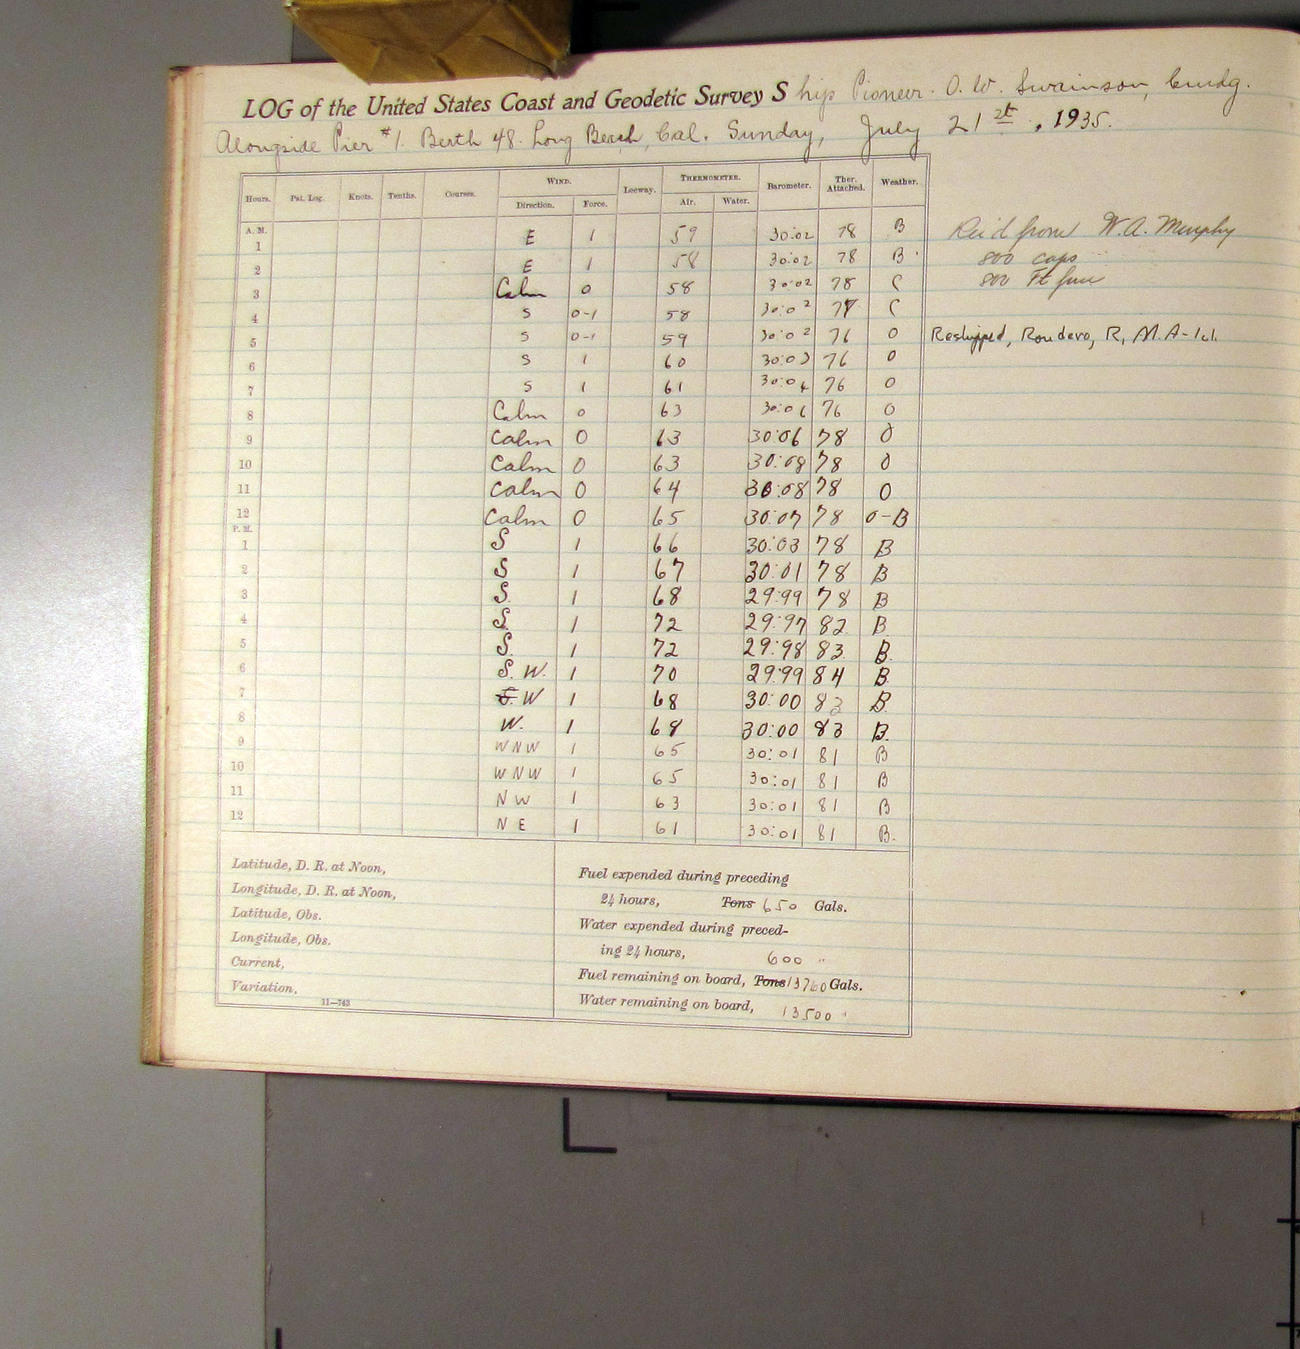 LOG of the United States Coast and Geodetic Survey Ship Pioneer. O. W. Swainson, Cmdg.
Alongside Pier #1. Berth 48. Long Beach, Cal. Sunday, July 21st, 1935.
WIND. THERMOMETER.
Hours. Pat. Log. Knots. Tenths. Courses. Direction. Force. Leeway. Air. Water. Barometer. Ther. Attached. Weather.
A. M.
1 E 1 59 30:02 78 B Rec'd from W. A. Murphy
2 E 1 58 30:02 78 B 800 caps
3 Calm 0 58 30:02 78 C 800 Ft fuse
4 S 0-1 58 30:02 77 C
5 S 0-1 59 30:02 76 O Reshipped, Rondero, R, M.A-1cl.
6 S 1 60 30:03 76 O
7 S 1 61 30:04 76 O
8 Calm 0 63 30:06 76 O
9 Calm 0 63 30:06 78 O
10 Calm 0 63 30:08 78 O
11 Calm 0 64 30:08 78 O
12 Calm 0 65 30:07 78 O-B
P. M.
1 S 1 66 30:03 78 B
2 S 1 67 30:01 78 B
3 S. 1 68 29:99 78 B
4 S. 1 72 29:97 82 B.
5 S. 1 72 29:98 83 B.
6 S. W. 1 70 29:99 84 B.
7 S. W 1 68 30:00 83 B.
8 W. 1 68 30:00 83 B.
9 WNW 1 65 30:01 81 B
10 WNW 1 65 30:01 81 B
11 NW 1 63 30:01 81 B
12 NE 1 61 30:01 81 B.
Latitude, D. R. at Noon,
Longitude, D. R. at Noon,
Latitude, Obs.
Longitude, Obs.
Current,
Variation,
11—743
Fuel expended during preceding
24 hours, Tons 650 Gals.
Water expended during preced-
ing 24 hours, 600 "
Fuel remaining on board, Tons 13760 Gals.
Water remaining on board, 13500 "